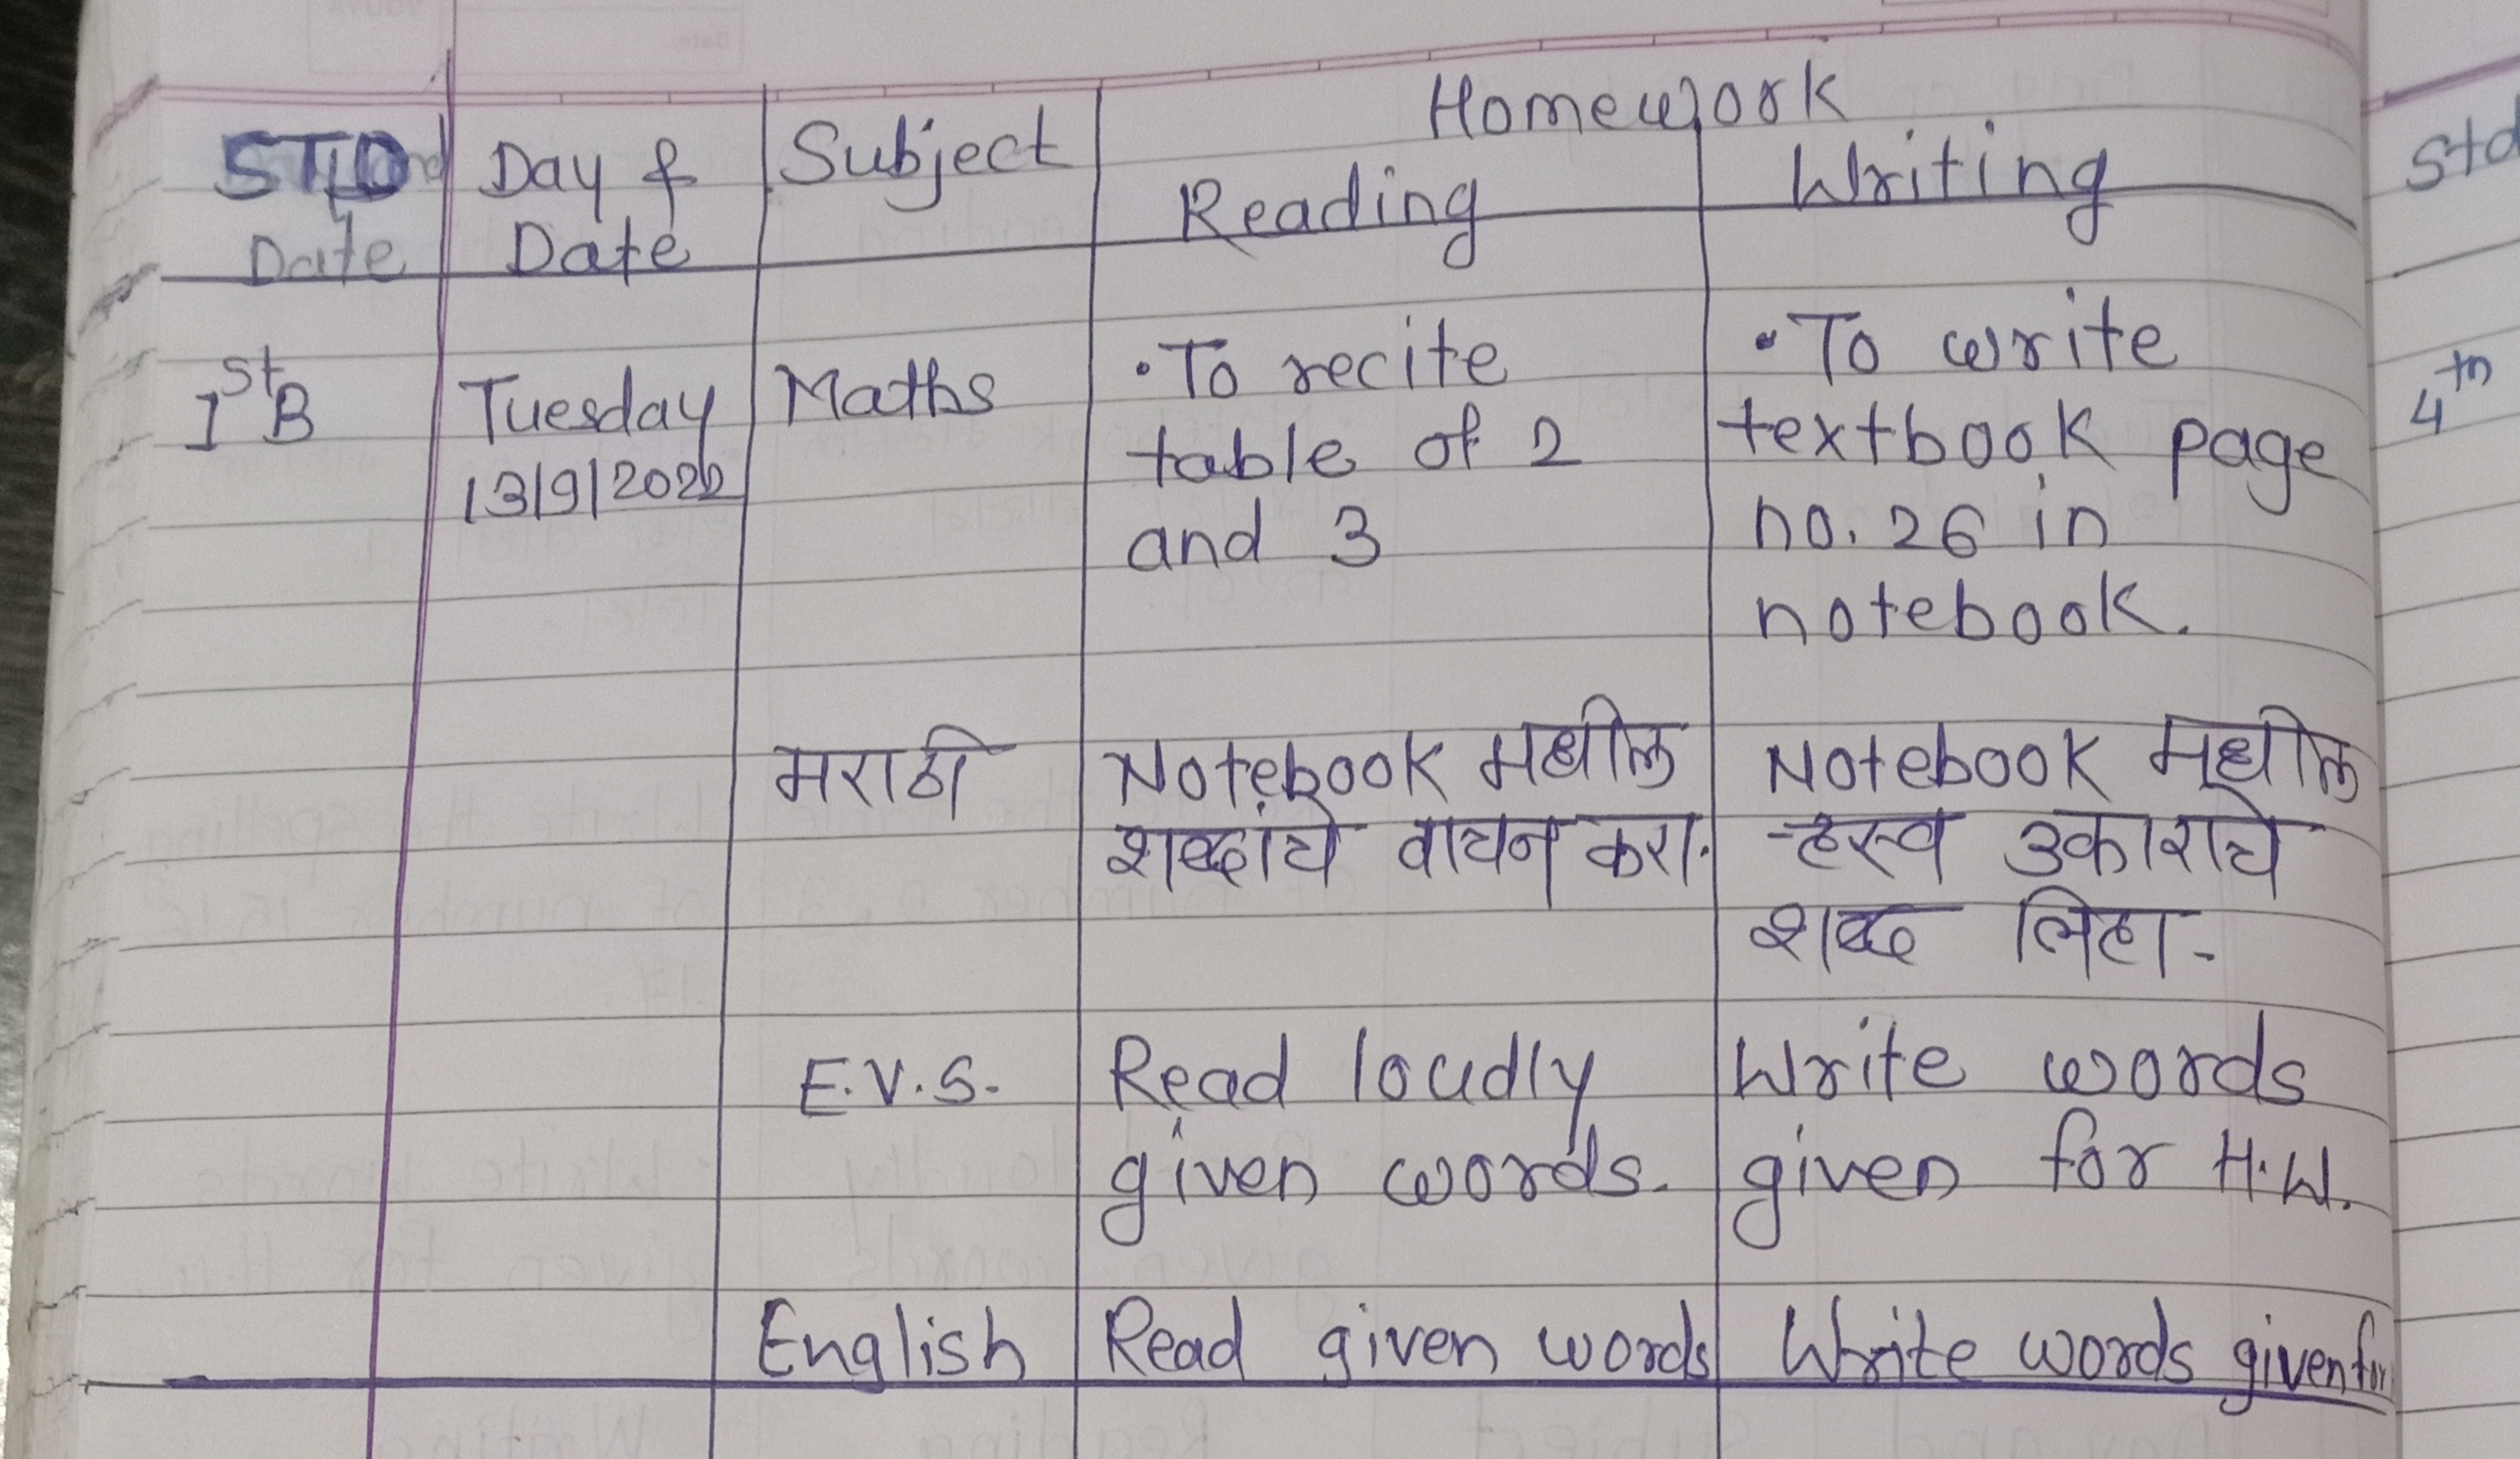 Homework
STD Day & Subject Reading Writing
Date Date
Ist B Tuesday Maths • To recite • To write
13/9/2022 table of 2 textbook page
and 3 no. 26 in
notebook.
मराठी Notebook मधील Notebook मधील
शब्दांचे वाचन करा. ऱ्हस्व उकाराचे
शब्द लिहा.
E.V.S. Read loudly Write words
given words. given for H.W.
English Read given words Write words given for
Std
4th